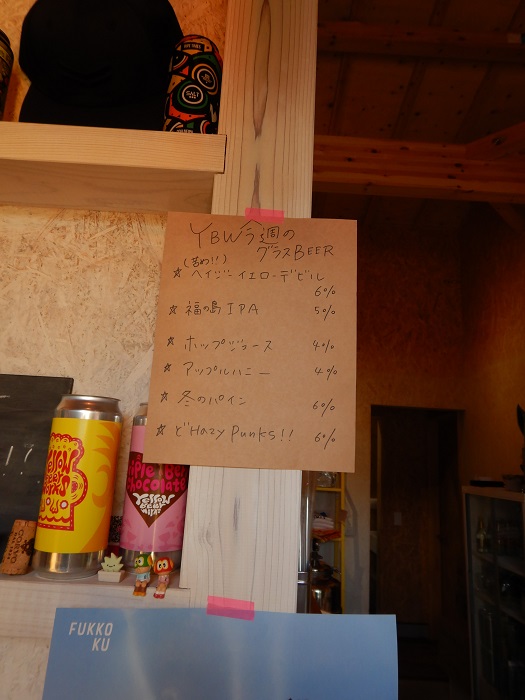 YBW今週の
グラスBEER
(苦め!!)
☆ ヘイジーイエローデビル
6%
☆ 福の島 IPA 5%
☆ ホップジュース 4%
☆ アップルハニー 4%
☆ 冬のパイン 6%
☆ どHazy Punks!! 6%
17
YELLOW
BEER
WORKS
Chocolate
YELLOW
BEER
WORKS
FUKKO
KU